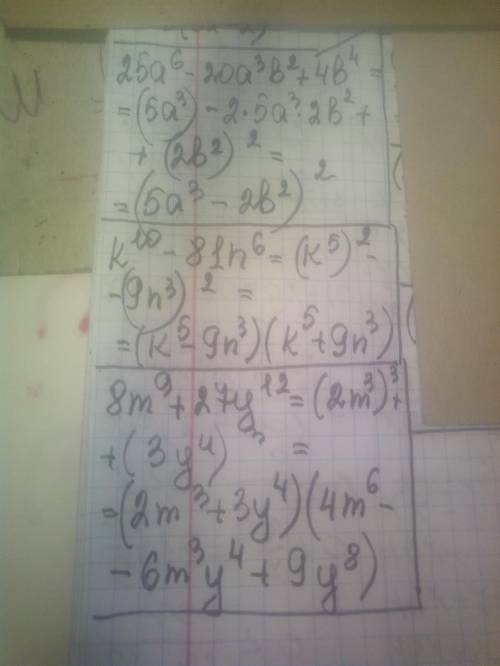 25a⁶ - 20a³b² + 4b⁴ =
= (5a³) - 2·5a³·2b² +
+ (2b²)² =
= (5a³ - 2b²)²
k¹⁰ - 81n⁶ = (k⁵)² -
- (9n³)² =
= (k⁵ - 9n³)(k⁵ + 9n³)
8m⁹ + 27y¹² = (2m³)³ +
+ (3y⁴) =
= (2m³ + 3y⁴)(4m⁶ -
- 6m³y⁴ + 9y⁸)